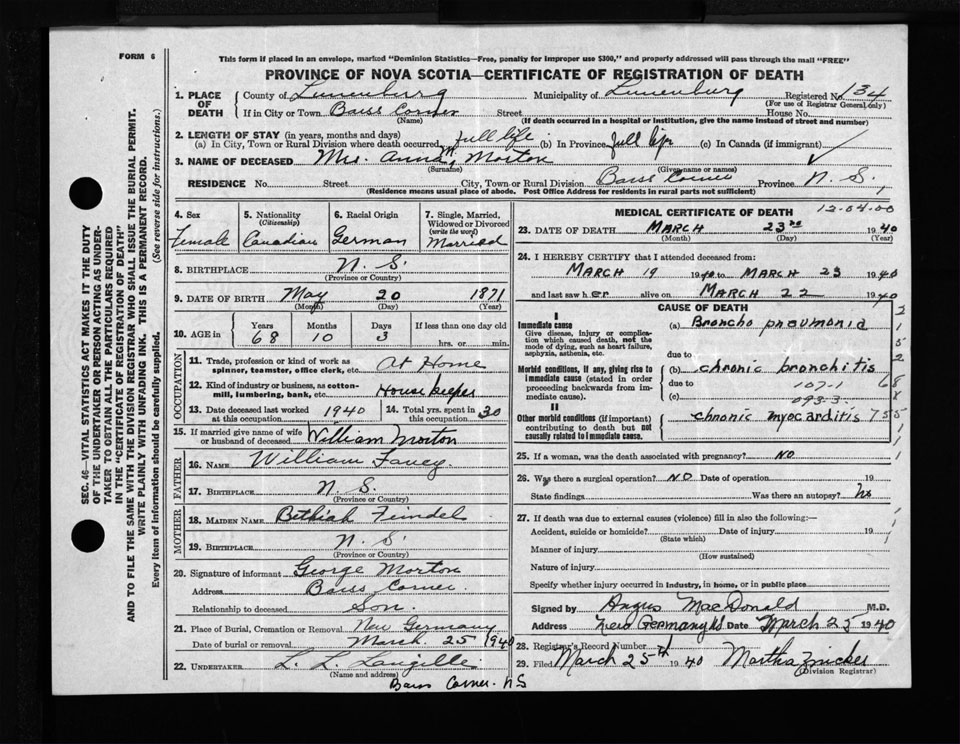 FORM 6
This form if placed in an envelope, marked "Dominion Statistics—Free, penalty for improper use $300," and properly addressed will pass through the mail "FREE"
PROVINCE OF NOVA SCOTIA—CERTIFICATE OF REGISTRATION OF DEATH
SEC. 46—VITAL STATISTICS ACT MAKES IT THE DUTY
OF THE UNDERTAKER OR PERSON ACTING AS UNDER-
TAKER TO OBTAIN ALL THE PARTICULARS REQUIRED
IN THE "CERTIFICATE OF REGISTRATION OF DEATH"
AND TO FILE THE SAME WITH THE DIVISION REGISTRAR WHO SHALL ISSUE THE BURIAL PERMIT.
WRITE PLAINLY WITH UNFADING INK. THIS IS A PERMANENT RECORD.
Every item of Information should be carefully supplied. (See reverse side for instructions.)
1. PLACE OF DEATH
County of Lunenburg Municipality of Lunenburg Registered No. 134
(For use of Registrar General only)
If in City or Town Barss Corner Street House No.
(Name) (If death occurred in a hospital or institution, give the name instead of street and number)
2. LENGTH OF STAY (in years, months and days)
(a) In City, Town or Rural Division where death occurred full life (b) In Province full life (c) In Canada (if immigrant)
3. NAME OF DECEASED Mrs. Anna M. Morton
(Surname) (Given name or names)
RESIDENCE No. Street City, Town or Rural Division Barss Corner Province N. S.
(Residence means usual place of abode. Post Office Address for residents in rural parts not sufficient)
4. Sex Female
5. Nationality (Citizenship) Canadian
6. Racial Origin German
7. Single, Married, Widowed or Divorced (write the word) Married
8. BIRTHPLACE N. S.
(Province or Country)
9. DATE OF BIRTH May 20 1871
(Month) (Day) (Year)
10. AGE in Years 68 Months 10 Days 3 If less than one day old hrs. or min.
OCCUPATION
11. Trade, profession or kind of work as spinner, teamster, office clerk, etc. At Home
12. Kind of industry or business, as cotton-mill, lumbering, bank, etc. House keeper
13. Date deceased last worked at this occupation 1940
14. Total yrs. spent in this occupation 30
15. If married give name of wife or husband of deceased William Morton
FATHER
16. NAME William
17. BIRTHPLACE N. S.
(Province or Country)
MOTHER
18. MAIDEN NAME Bethiah Feindel
19. BIRTHPLACE N. S.
(Province or Country)
20. Signature of informant George Morton
Address Barss Corner
Relationship to deceased Son.
21. Place of Burial, Cremation or Removal New Germany
Date of burial or removal March 25 1940
22. UNDERTAKER L. L. Langille
(Name and address)
Barss Corner. NS
MEDICAL CERTIFICATE OF DEATH 12-04-00
23. DATE OF DEATH MARCH 23rd 1940
(Month) (Day) (Year)
24. I HEREBY CERTIFY that I attended deceased from:
MARCH 19 1940 to MARCH 23 1940
and last saw her alive on MARCH 22 1940
CAUSE OF DEATH
I
Immediate cause
Give disease, injury or complication which caused death, not the mode of dying, such as heart failure, asphyxia, asthenia, etc.
(a) Broncho pneumonia
due to
Morbid conditions, if any, giving rise to immediate cause (stated in order proceeding backwards from immediate cause).
(b) chronic bronchitis
due to 107-1
(c) 093-3
II
Other morbid conditions (if important) contributing to death but not causally related to immediate cause.
chronic myocarditis
25. If a woman, was the death associated with pregnancy? NO
26. Was there a surgical operation? NO Date of operation 19
State findings Was there an autopsy? No
27. If death was due to external causes (violence) fill in also the following:—
Accident, suicide or homicide? Date of injury 19
(State which)
Manner of injury
(How sustained)
Nature of injury
Specify whether injury occurred in industry, in home, or in public place
Signed by Angus MacDonald M.D.
Address New Germany NS Date March 25 1940
28. Registrar's Record Number 7
29. Filed March 25th 1940 Martha Zinck
(Division Registrar)